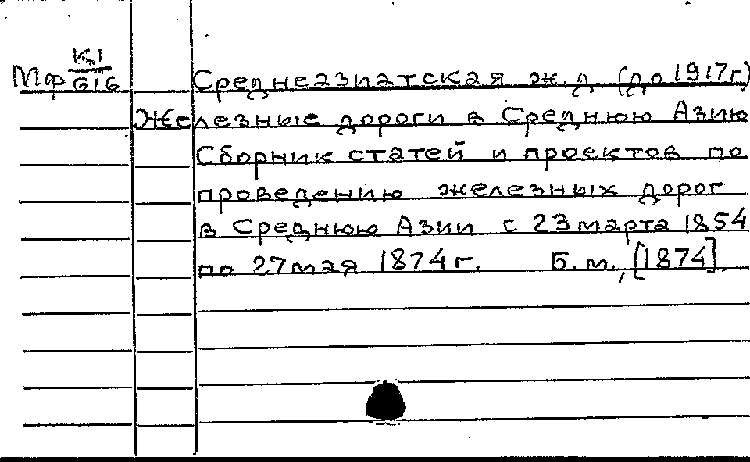 Мф К1/616
Среднеазиатская ж.д. (до 1917г.)
Железные дороги в Среднюю Азию
Сборник статей и проектов по
проведению железных дорог
в Среднюю Азии с 23 марта 1854
по 27 мая 1874 г. Б.м., [1874].